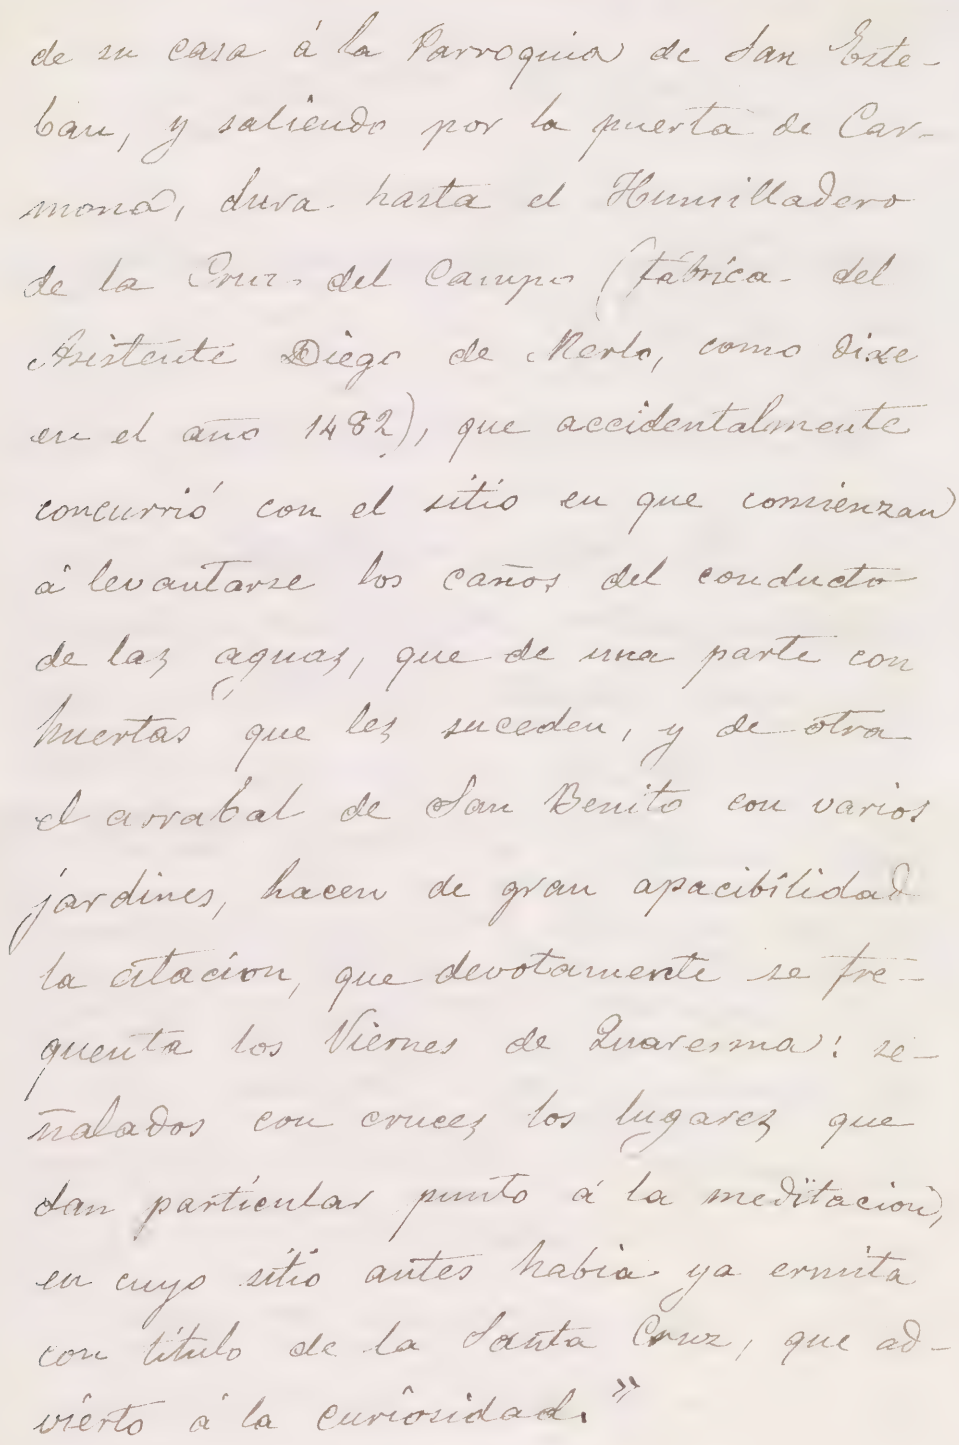 de su casa á la Parroquia de San Este-
ban, y saliendo por la puerta de Car-
mona, dura hasta el Humilladero
de la Cruz del Campo (fábrica del
Asistente Diego de Merlo, como dixe
en el año 1482), que accidentalmente
concurrió con el sitio en que comienzan
á levantarse los caños del conducto
de las aguas, que de una parte con
huertas que les suceden, y de otra
el arrabal de San Benito con varios
jardines, hacen de gran apacibilidad
la citacion, que devotamente se fre-
quenta los Viernes de Quaresma: se-
ñalados con cruces los lugares que
dan particular punto á la meditacion,
en cuyo sitio antes habia ya ermita
con título de la Santa Cruz, que ad-
vierto á la curiosidad.»